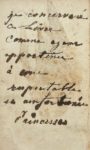 je conserverai
ce livre
comme ayant
appartenu
à une
respectable
et infortunée
Princesse